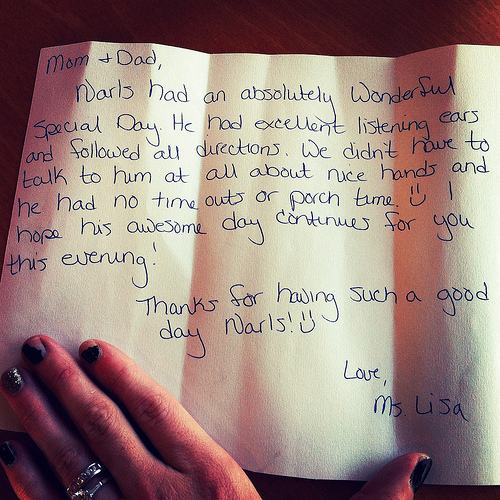 Mom + Dad,
Narls had an absolutely Wonderful
Special Day. He had excellent listening ears
and followed all directions. We didn't have to
talk to him at all about nice hands and
he had no time outs or porch time. :) I
hope his awesome day continues for you
this evening!
Thanks for having such a good
day Narls! :)
Love,
Ms. Lisa